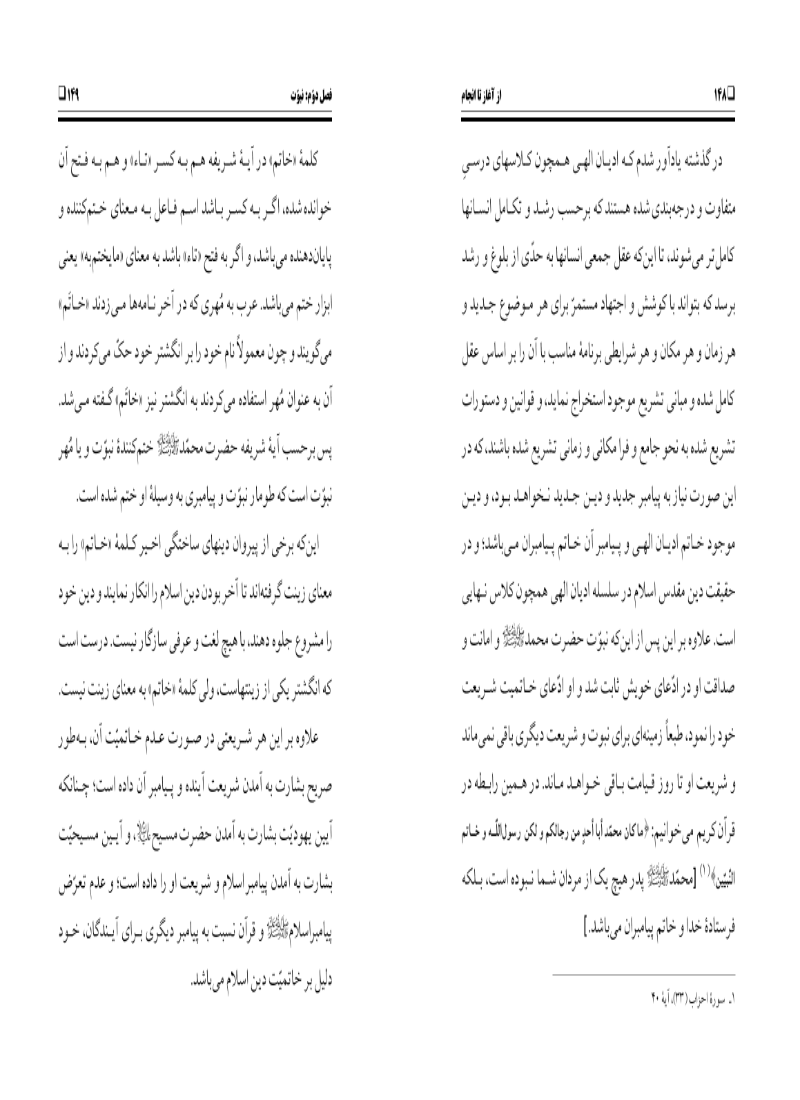 ❑۱۴۸ از آغاز تا انجام
در گذشته یادآور شدم که ادیان الهی همچون کلاسهای درسیِ
متفاوت و درجه‌بندی شده هستند که برحسب رشد و تکامل انسانها
کامل‌تر می‌شوند، تا این‌که عقل جمعی انسانها به حدّی از بلوغ و رشد
برسد که بتواند با کوشش و اجتهاد مستمرّ برای هر موضوع جدید و
هر زمان و هر مکان و هر شرایطی برنامهٔ مناسب با آن را بر اساس عقل
کامل شده و مبانی تشریع موجود استخراج نماید، و قوانین و دستورات
تشریع شده به نحو جامع و فرا مکانی و زمانی تشریع شده باشند، که در
این صورت نیاز به پیامبر جدید و دین جدید نخواهد بود، و دین
موجود خاتم ادیان الهی و پیامبر آن خاتم پیامبران می‌باشد؛ و در
حقیقت دین مقدس اسلام در سلسله ادیان الهی همچون کلاس نهایی
است. علاوه بر این پس از این‌که نبوّت حضرت محمدﷺ و امانت و
صداقت او در ادّعای خویش ثابت شد و او ادّعای خاتمیت شریعت
خود را نمود، طبعاً زمینه‌ای برای نبوت و شریعت دیگری باقی نمی‌ماند
و شریعت او تا روز قیامت باقی خواهد ماند. در همین رابطه در
قرآن کریم می‌خوانیم: ﴿ما کان محمّد أبا أحدٍ من رجالکم و لکن رسول‌اللّه و خاتم
النّبیّین﴾(۱) [محمّدﷺ پدر هیچ یک از مردان شما نبوده است، بلکه
فرستادهٔ خدا و خاتم پیامبران می‌باشد.]
۱ـ سورهٔ احزاب (۳۳)، آیهٔ ۴۰
فصل دوّم: نبوّت ۱۴۹❑
کلمهٔ «خاتم» در آیهٔ شریفه هم به کسر «تاء» و هم به فتح آن
خوانده شده، اگر به کسر باشد اسم فاعل به معنای ختم‌کننده و
پایان‌دهنده می‌باشد، و اگر به فتح «تاء» باشد به معنای «مایختم‌به» یعنی
ابزار ختم می‌باشد. عرب به مُهری که در آخر نامه‌ها می‌زدند «خاتَم»
می‌گویند و چون معمولاً نام خود را بر انگشتر خود حکّ می‌کردند و از
آن به عنوان مُهر استفاده می‌کردند به انگشتر نیز «خاتَم» گفته می‌شد.
پس برحسب آیهٔ شریفه حضرت محمّدﷺ ختم‌کنندهٔ نبوّت و یا مُهر
نبوّت است که طومار نبوّت و پیامبری به وسیلهٔ او ختم شده است.
این‌که برخی از پیروان دینهای ساختگی اخیر کلمهٔ «خاتم» را به
معنای زینت گرفته‌اند تا آخر بودن دین اسلام را انکار نمایند و دین خود
را مشروع جلوه دهند، با هیچ لغت و عرفی سازگار نیست. درست است
که انگشتر یکی از زینتهاست، ولی کلمهٔ «خاتم» به معنای زینت نیست.
علاوه بر این هر شریعتی در صورت عدم خاتمیّت آن، به‌طور
صریح بشارت به آمدن شریعت آینده و پیامبر آن داده است؛ چنانکه
آیین یهودیّت بشارت به آمدن حضرت مسیحعلیه السلام، و آیین مسیحیّت
بشارت به آمدن پیامبر اسلام و شریعت او را داده است؛ و عدم تعرّض
پیامبراسلامﷺ و قرآن نسبت به پیامبر دیگری برای آیندگان، خود
دلیل بر خاتمیّت دین اسلام می‌باشد.